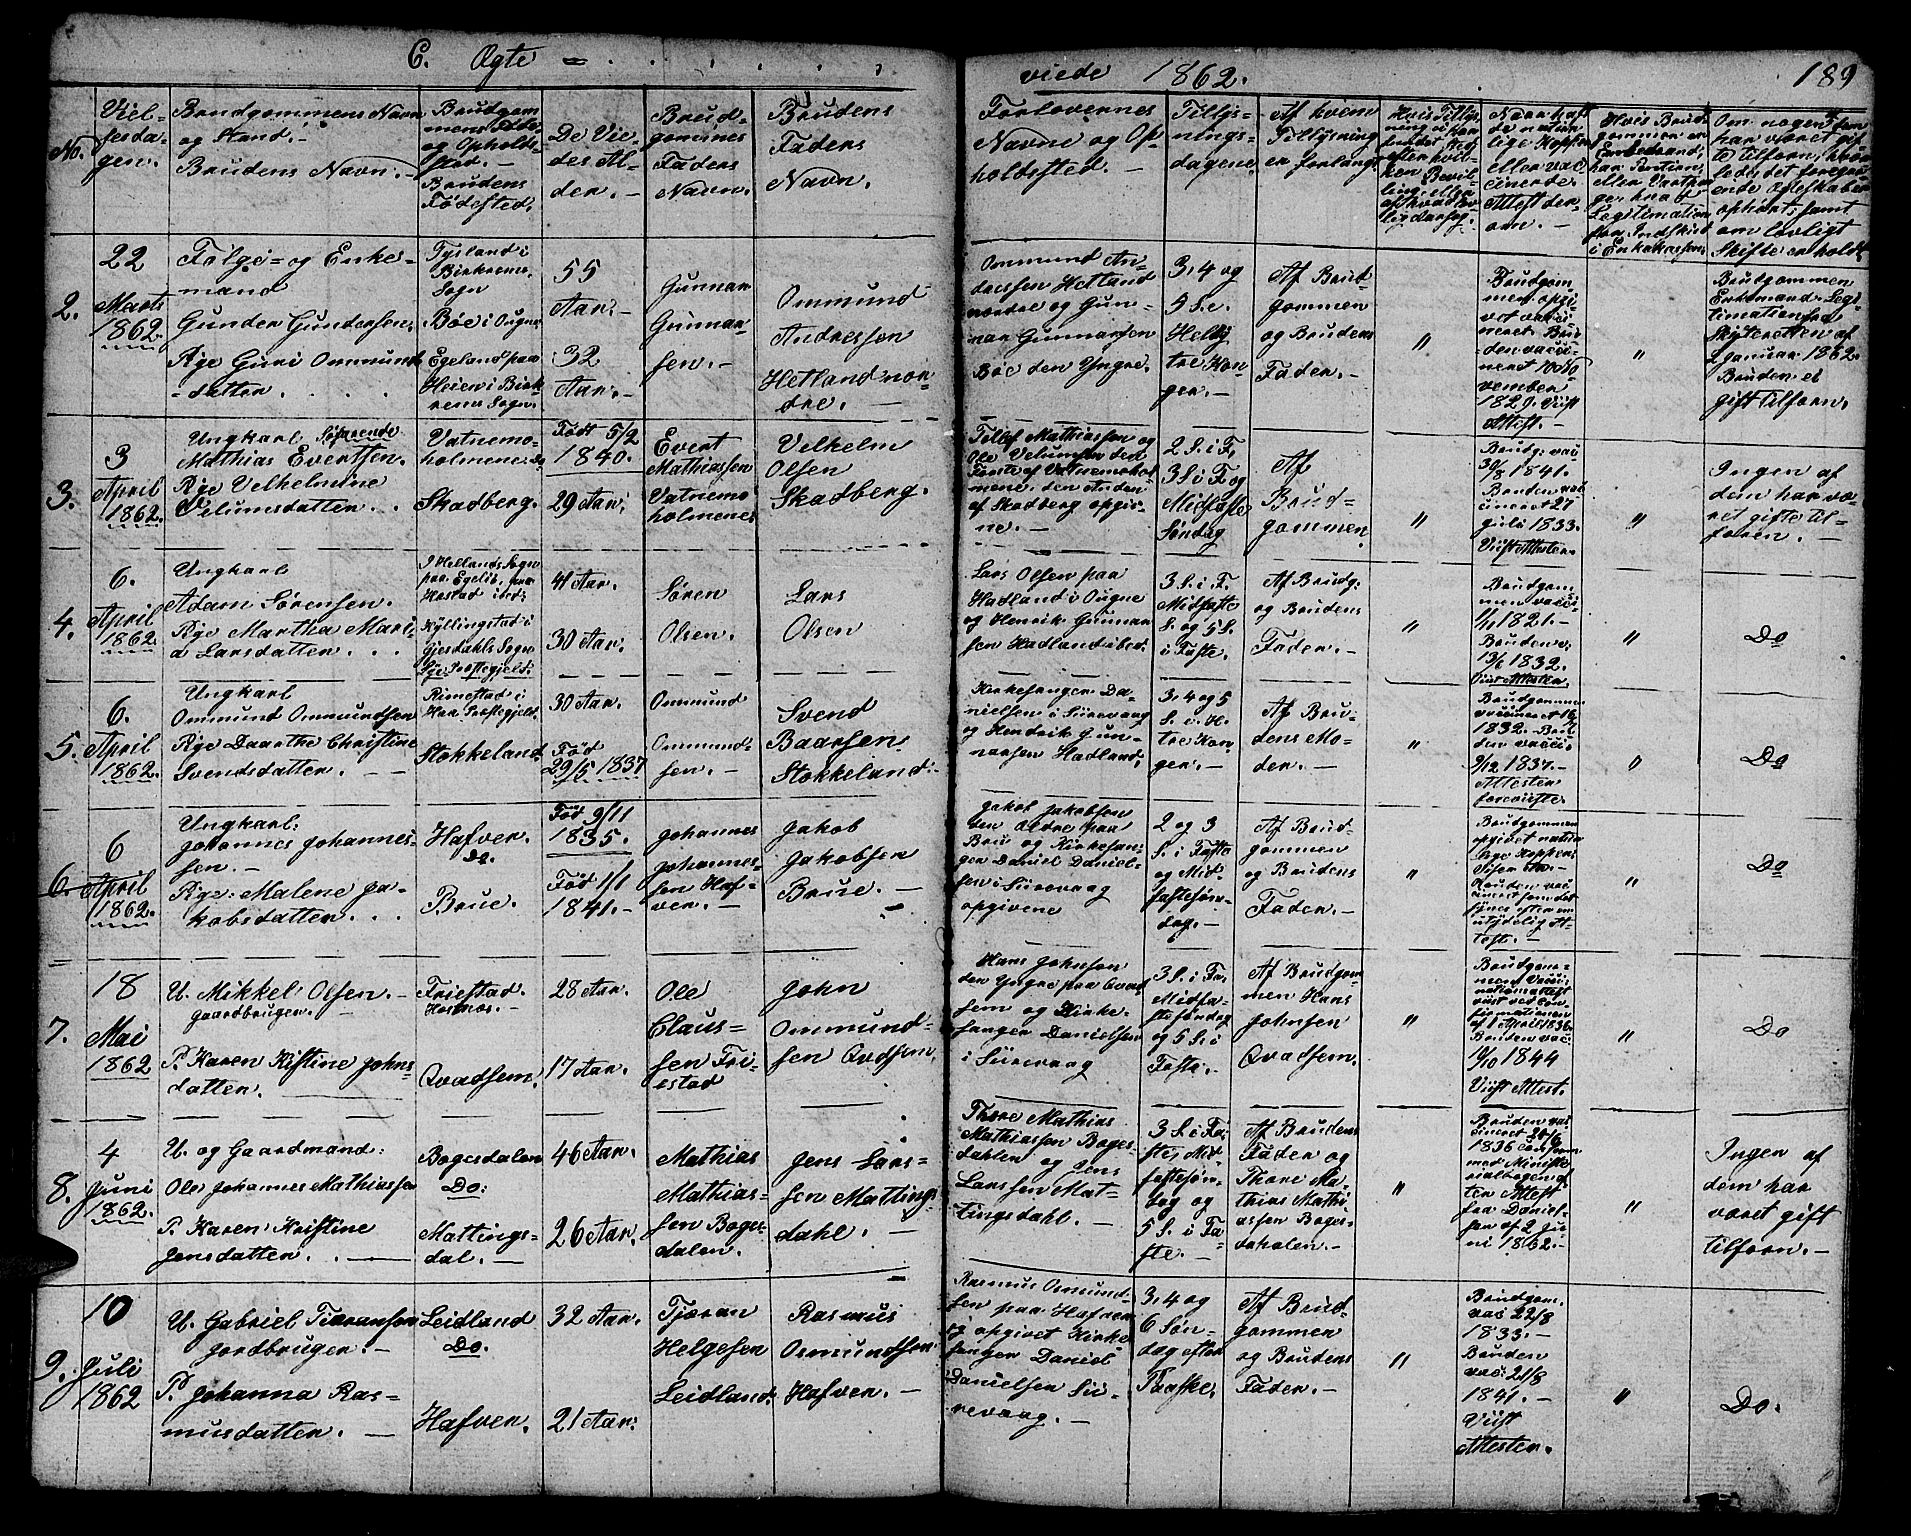 C. Ægte = viede 1862. 189
No.
Viel-
sesda-
gen.
Brudgommens Navn
og Stand.-
Brudens Navn.-
Brudgom-
mens Føde-
og Opholds-
sted.-
Brudens
Fødested.
De Vie-
des Al-
der.-
Brud-
gommes
Faders
Navn.
Brudens
Faders
Navn.
Forlovernes
Navne og Op-
holdssted.-
Tillys-
nings-
dagene.
Af hvem
Tillysning
er forlangt
2.
22
Marts
1862.
Følge- og Enke-
mand
Gunder Gundersen.
Pige Guri Ommunds-
datter.
Tysland i
Birkrems
Sogn
Bøe i Ougne
Egeland paa
Heien i Birk-
rems Sogn.
55
Aar.-
32
Aar.-
Gunnar
Gunnar-
sen.-
Ommund
Andressen
Hetland nor-
dre.-
Ommund An-
dressen Hetland
nordre og Gun-
nar Gunnarsen
Bøe den Yngre.
3, 4 og
5 S. e.
Hellig
tre Kon-
ger.
Af Brud-
gommen
og Brudens
Fader.-
"
Brudgom-
men opgi-
vet vacci-
neret. Bru-
den vacci-
neret 10 No-
vember
1829. Viist
Attest.-
"
Brudgommen
Enkemand. Legi-
timation fra
Skifteretten af
2 Januar 1862.
Bruden ei
gift tilforn.
3.
3
April
1862.
Ungkarl Søfarende
Mathias Evertsen.
Pige Velhelmine
Velumsdatter.
Vatnemo-
holmene. do
Skadberg.
Født 5/2
1840.
29 Aar.
Evert
Mathiassen
Vatnemo-
holmene
Velhelm
Olsen
Skadberg.
Tillef Mathiassen og
Ole Velumsen den
Første af Vatnemohol-
mene, den Anden
af Skadberg opgiv-
ne.-
2 S. i F.
3 S. i F. og
Midfaste
Søndag
Af
Brud-
gommen.
"
Brudg. vac
30/8 1841.
Bruden vac-
cineret 27
Juli 1833.
Viist Attester.
"
Ingen af
dem har væ-
ret gifte til-
foren.-
4.
6.
April
1862.
Ungkarl
Adam Sørensen.
Pige Martha Mari-
a Larsdatter.
I Hellands Sogn
paa Egelie, paa
Kyllingstad i
Gjesdahls Sogn
Lye Præstegjeld.
41 Aar.
30 Aar.
Søren
Olsen.
Lars
Olsen
Lars Olsen paa
Hadland i Ougne
og Henrik Gunnar-
sen Hadland ibid.
3 S. i F.
Midfaste
S. og 5 S.
i Faste.
Af Brudg.
og Brudens
Fader.-
"
Brudgom-
men vacci-
1821.-
Bruden v.
13/6 1832.
Viist Attester.
"
Do
5.
6.
April
1862.
Ungkarl
Ommund Ommundsen
Pige Daarthe Christine
Svendsdatter.
Rimestad i
Haa Præstegjeld.
Stokkeland.
30 Aar.
Fød
29/5 1837
Ommund
Ommund-
sen.-
Svend
Baarsen
Stokkeland.-
Kirkesanger Da-
nielsen i Siirevaag
og Hendrik Gun-
narsen Hadland.
3, 4 og 5
S. i H.
tre Kon-
ger.
Af Bru-
dens Mo-
der.-
"
Brudgommen
1832. Bru-
den vacci-
9/12 1837.-
Attester
foreviiste.
"
Do
6.
6
April
1862.
Ungkarl:
Johannes Johannes-
sen.-
Pige: Malene Ja-
kobsdatter.
Hafven.
Do.
Brue.
Fød 9/11
1835.
Fød 1/1
1841.-
Johannes
Johannes-
sen Haf-
ven.-
Jakob
Jakobsen
Brue.-
Jakob Jakobsen
den Ældre paa
Brue og Kirkesan-
ger Daniel Daniel-
sen i Siirevaag
opgivene
2 og 3
S. i Faste
og Mid-
fastesøn-
dag.-
Af Brud-
gommen
og Brudens
Fader.-
"
Brudgommen
opgivet natur-
lige Kopper
Bruden vac-
cineret som det
synes efter en
utydelig At-
test.-
"
Do
7.
18
Mai
1862
U. Mikkel Olsen.-
Gaardbruger.-
P. Karen Kistine Johns-
datter.
Friestad.
Qvadsem.
28 Aar.
17 Aar.
Ole
Claus-
sen Fri-
estad
John
Ommund-
sen Qvadsem.
Hans Johnsen
den Yngre paa Qvad-
sem og Kirke-
sanger Danielsen
i Siirevaag
3 S. i Fa.
Midfa-
stesøndag
og 5 S. i
Faste.-
Af Brudgom-
men Hans
Johnsen
Qvadsem.
"
Brudgom-
men Vacci-
nationsattest
viist ved Con-
firmationen
af 1 April 1836
Bruden vac:
1844
Viist Attest.
"
Do
8.
4
Juni
1862.
U. og Gaardmand:
Ole Johannes Mathiassen
P. Karen Kristine
Jensdatter.
Bogesdalen
Do:
Mattings-
dal.-
46 Aar.
26 Aar.
Mathias
Mathias-
sen Boges-
dalen.
Jens Lars-
sen Mattings-
dahl.-
Thore Mathias
Mathiassen Boges-
dahlen og Jens
Larssen Mat-
tingsdahl.-
3 S. i Fa-
ste, Mid-
fastesøn-
dag og
5 S. i Fa-
ste.-
Af Brudens
Fader og
Thore Ma-
thias Mathi-
assen Boges-
dahlen.-
"
Bruden vac-
cineret 20/6
1836
med Ministe-
rialbogen ef-
ter Attest
fra Daniel-
sen af 2 Ju-
ni 1862.-
"
Ingen af
dem har
været gift
tilforn.-
9.
10
Juli
1862
U. Gabriel Tjøransen
Jordbruger.-
P. Johanna Ras-
musdatter.
Leidland
Do.
Hafven.
32 Aar.
21 Aar.
Tjøran
Helgesen
Leidland.
Rasmus
Osmundsen
Hafven.-
Rasmus Osmund-
sen paa Hafven
og opgivet Kirke-
sanger Daniel
Danielsen Sii-
revaag.-
3, 4 og
6 Søn-
dag efter
Paaske.
Af Brud-
gommen
og Brudens
Fader.-
"
Brudgom.
vac 22/8
1833.-
Bruden
vac. 21/8
1841.-
Viist
Attester.
"
Do.